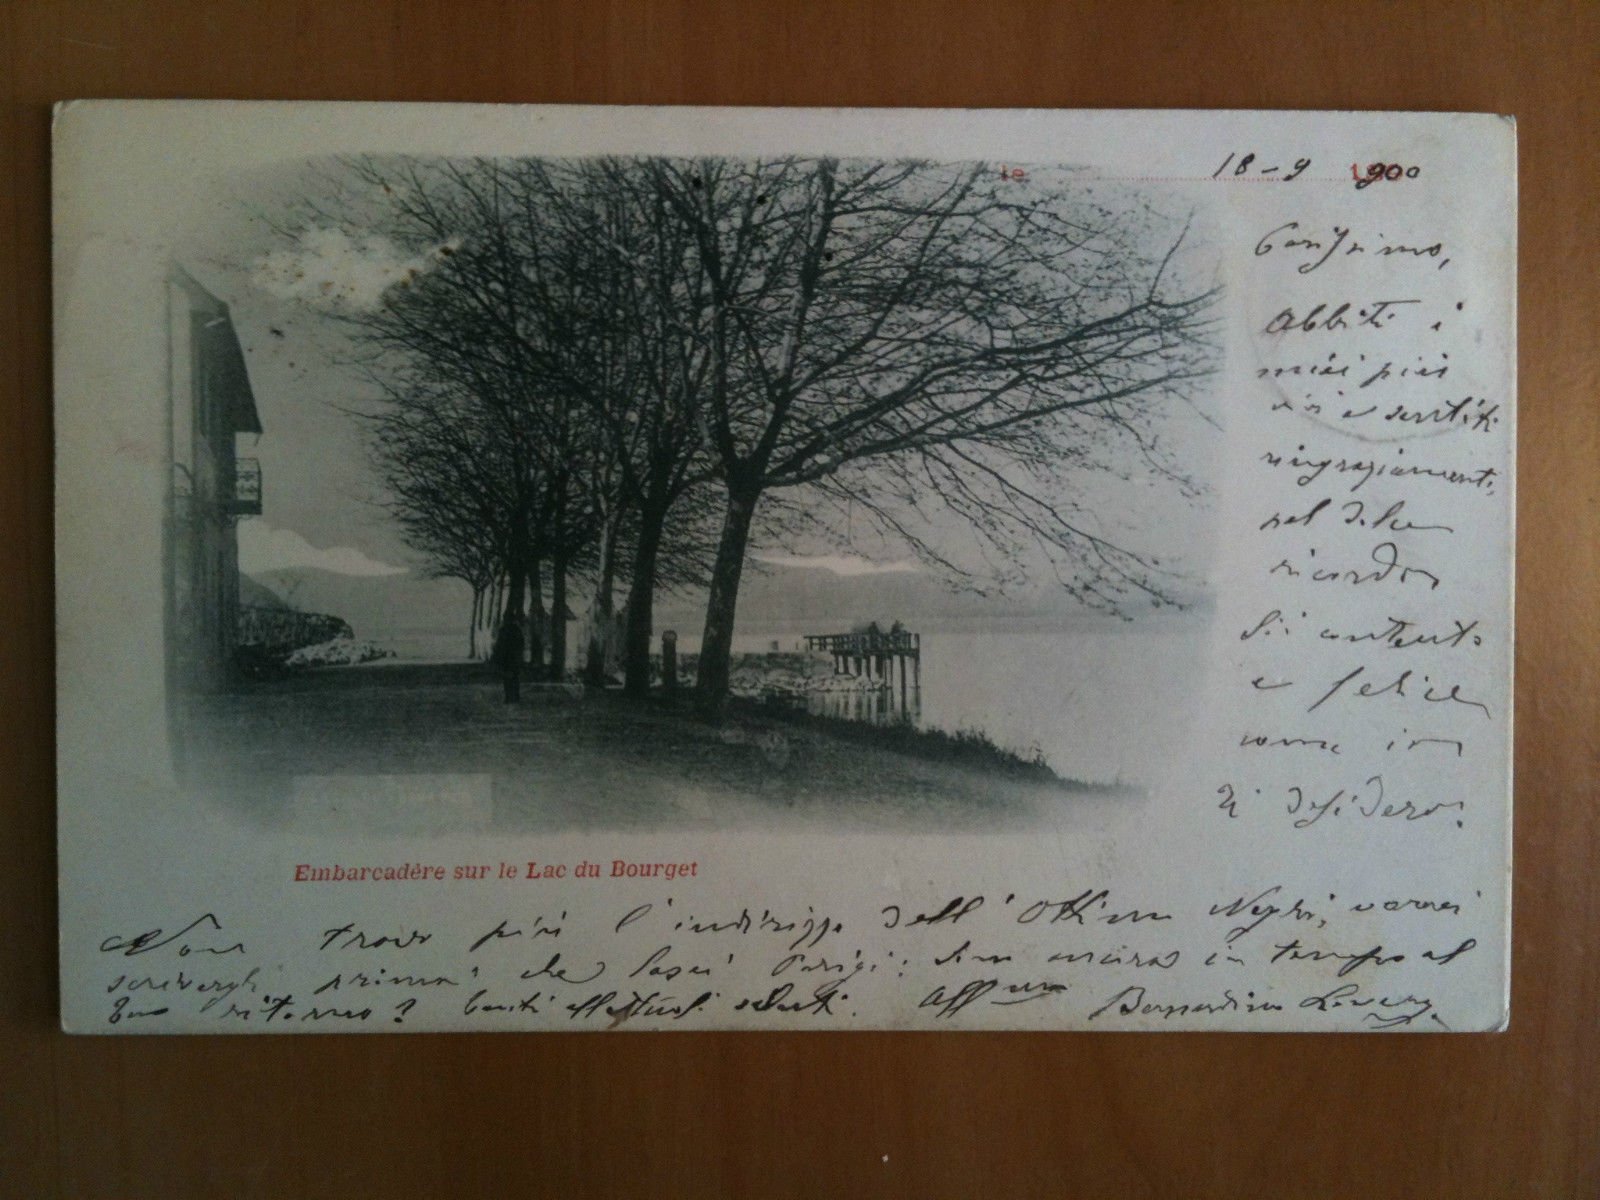 le 18-9 900
Carissimo,
Abbiti i
miei più
vivi e sentiti
ringraziamenti
pel
ricordo
Sii contento
e felice
come io
ti desidero.
Embarcadère sur le Lac du Bourget
Non trovo più l'indirizzo dell'ottimo Neghi, vorrei
scrivergli prima che lasci Parigi: sono ancora in tempo al
tuo ritorno? Tanti affettuosi saluti. Aff mo Bernardino